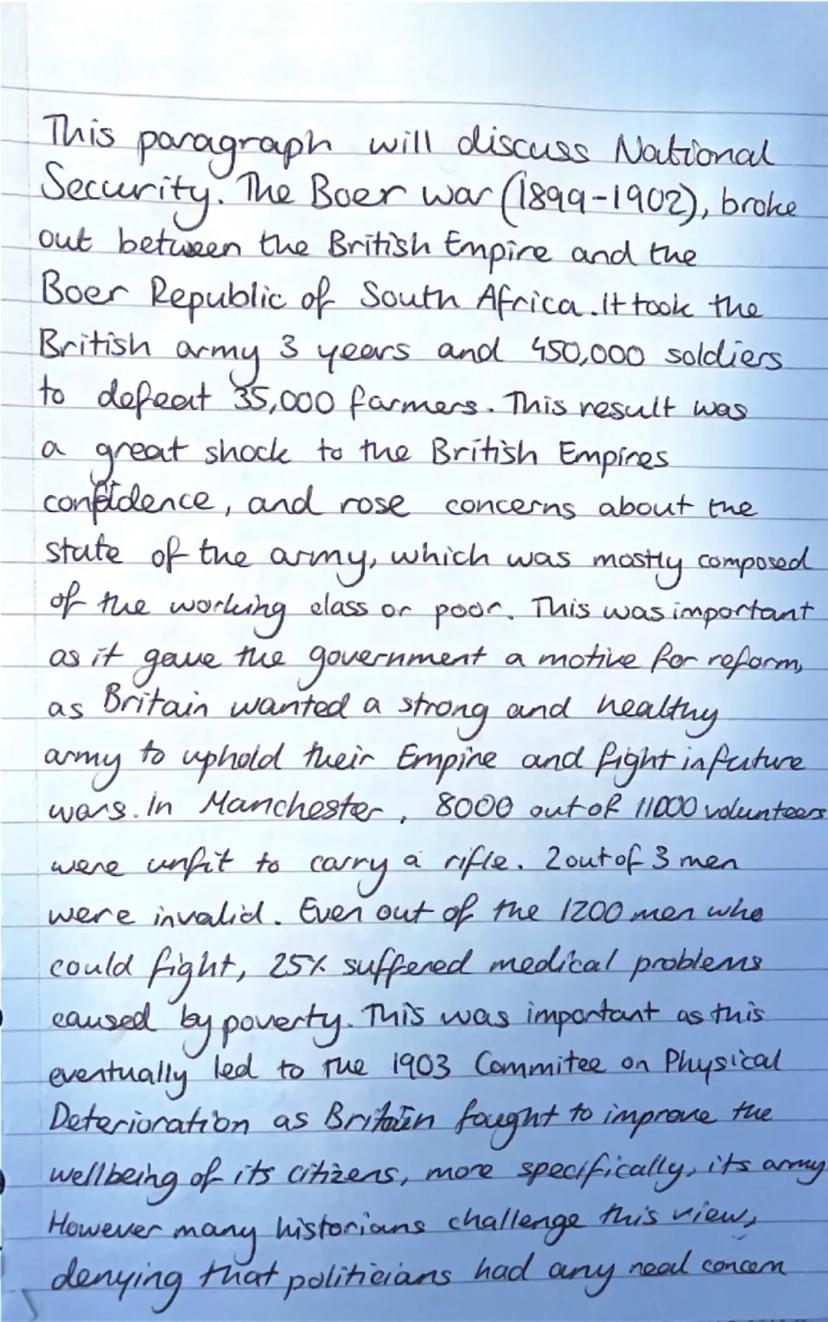 This paragraph will discuss National
Security. The Boer war (1899-1902), broke
out between the British Empire and the
Boer Republic of South Africa. It took the
British army 3 years and 450,000 soldiers
to defeat 35,000 farmers. This result was
a great shock to the British Empires
confidence, and rose concerns about the
state of the army, which was mostly composed
of the working class or poor. This was important
as it gave the government a motive for reform,
as Britain wanted a strong and healthy
army to uphold their Empire and fight in future
wars. In Manchester, 8000 out of 11000 volunteers
were unfit to carry a rifle. 2 out of 3 men
were invalid. Even out of the 1200 men who
could fight, 25% suffered medical problems
caused by poverty. This was important as this
eventually led to the 1903 Commitee on Physical
Deterioration as Britain fought to improve the
wellbeing of its citizens, more specifically, its army.
However many historians challenge this view,
denying that politicians had any real concern